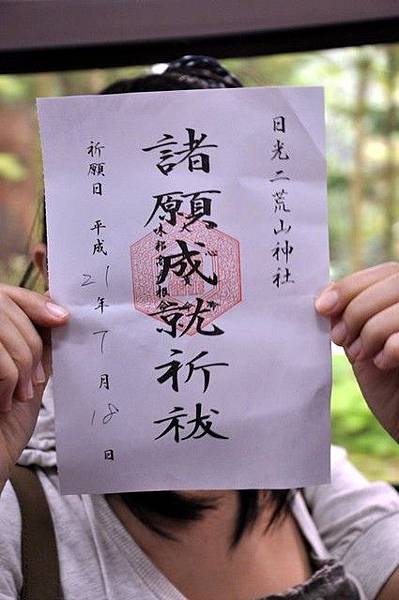 日光二荒山神社
諸願成就祈祓
祈願日 平成21年7月18日